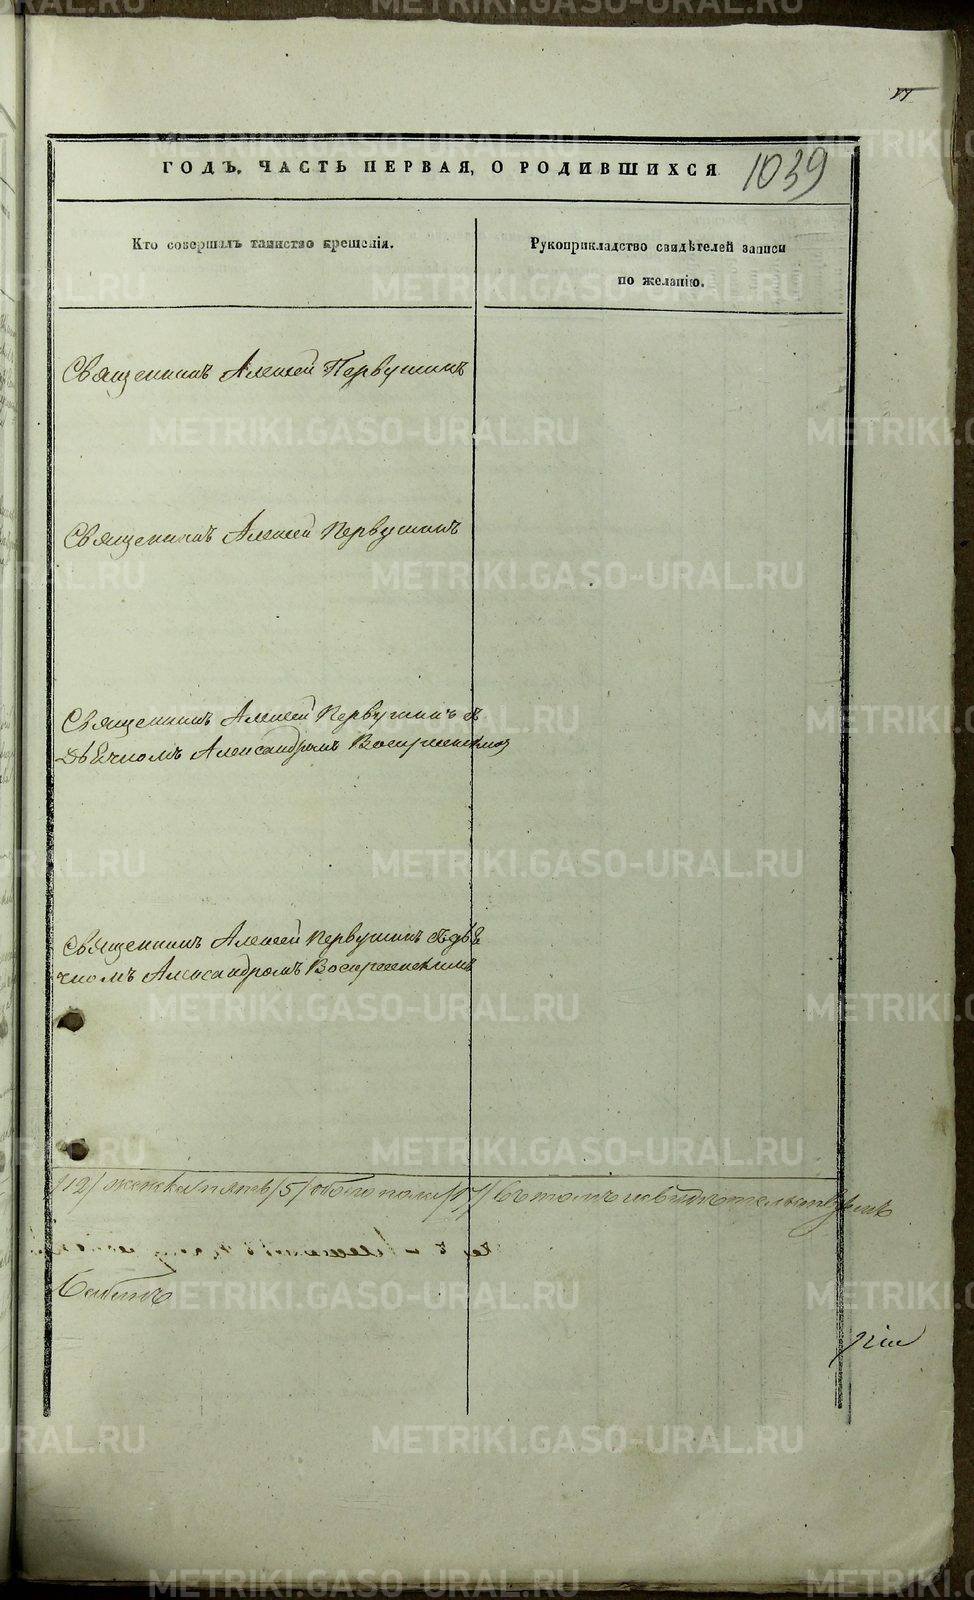 ГОДЪ, ЧАСТЬ ПЕРВАЯ, О РОДИВШИХСЯ
1039
Кто совершалъ таинство крещенія.
Рукоприкладство свидѣтелей записи
по желанію.
Священникъ Алексѣй Первушинъ
Священникъ Алексѣй Первушинъ
Священникъ Алексѣй Первушинъ съ
Дьячкомъ Александромъ Воскресенскимъ
Священникъ Алексѣй Первушинъ съ дья
чкомъ Александромъ Воскресенскимъ
/12/ женска пять /5/ обоего пола /17/ въ томъ и свидѣтельствуемъ
METRIKI.GASO-URAL.RU